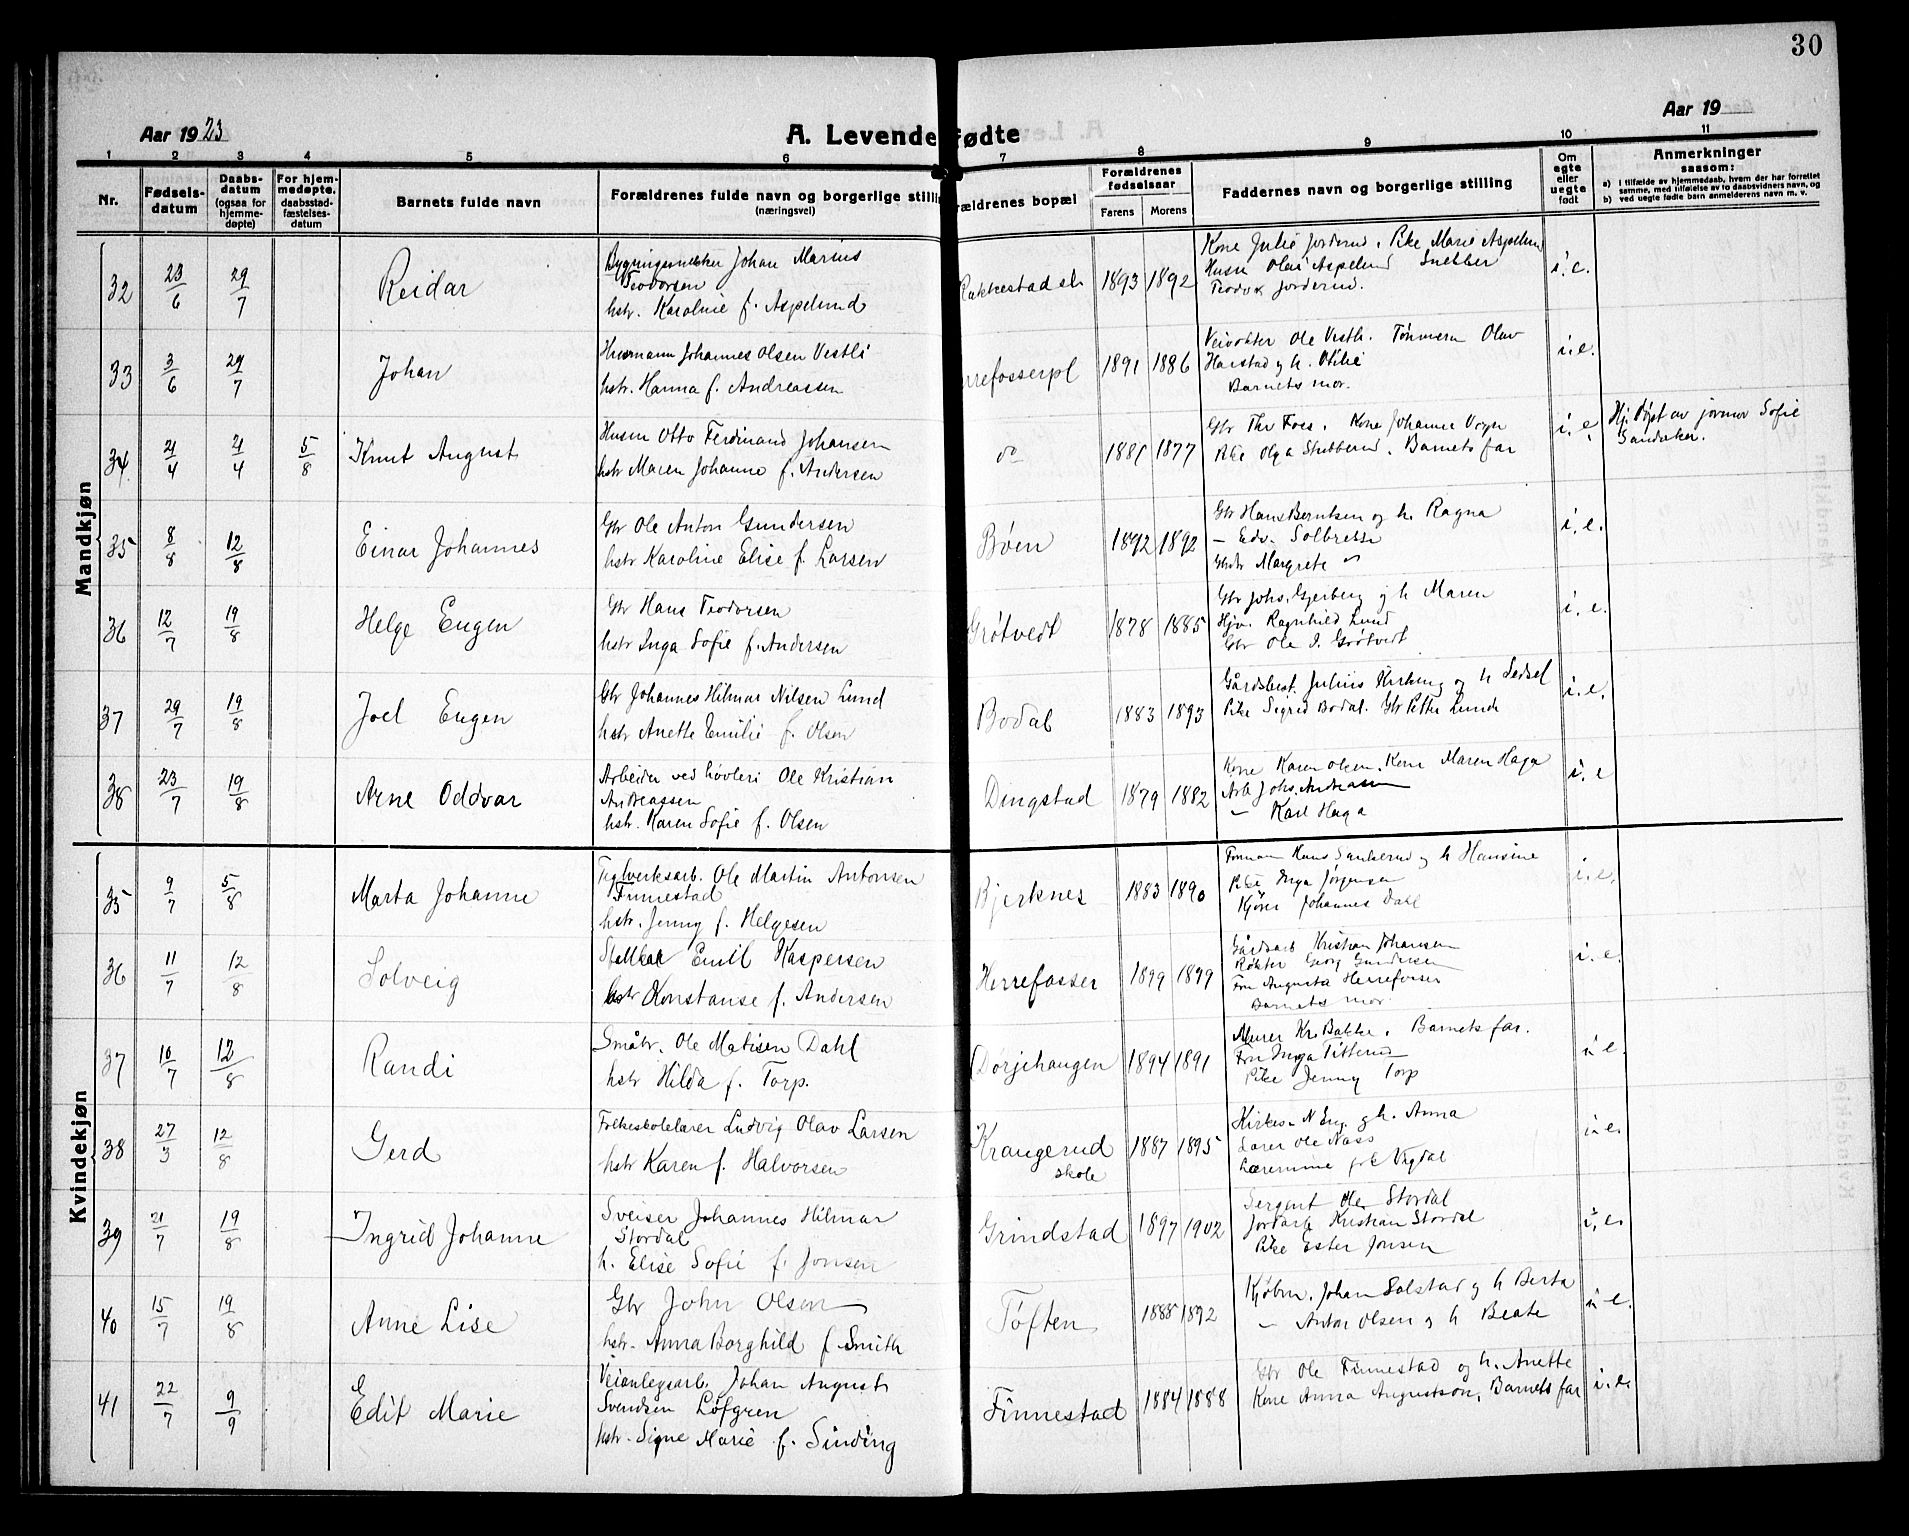 30
Aar 1923
A. Levende fødte
Aar 19
1 2 3 4 5 6 7 8 9 10 11
Nr.
Fødsels-
datum
Daabs-
datum
(ogsaa for
hjemme-
døpte)
For hjem-
medøpte,
daabsstad-
fæstelses-
datum
Barnets fulde navn
Forældrenes fulde navn og borgerlige stilling
(næringsvei)
Forældrenes bopæl
Forældrenes
fødselsaar
Farens Morens
Faddernes navn og borgerlige stilling
Om
egte
eller
uegte
født
Anmerkninger
saasom:
a) I tilfælde av hjemmedaab, hvem der har forrettet
samme, med tilføielse av to daabsvidners navn, og
b) ved uegte fødte barn anmelderens navn m. v.
Mandkjøn
32 23/6 29/7 Reidar
Johan Marius
Teodorsen
hstr. Karoline f. Aspelund
Rakkestad st. 1893 1892
Kone Julie Jorderud. Pike Marie Aspelund
Husm Olaf Aspelund Snekker
Teodor Jorderud.
i.e.
33 3/6 29/7 Johan
Husmann Johannes Olsen Vestli
hstr. Hanna f. Andreassen
1891 1886
Veivokter Ole Vestli. Tømmerm Olav
Harstad og h. Otilie
Barnets mor.
i.e.
34 21/4 21/4 5/8 Knut August
Husm Otto Ferdinand Johansen
hstr Maren Johanne f. Andersen
do 1881 1877
Gbr Thv Foss. Kone Johanne
Pike Olga Stubberud. Barnets far
i.e.
Hj. døpt av jormor Sofie
35 8/8 12/8 Einar Johannes
Gbr Ole Anton Gundersen
hstr Karoline Elise f. Larsen
Bøen 1892 1892
Gbr Hans Berntsen og h. Ragna
— Edv.
Margrete
i.e.
36 12/7 19/8 Helge Eugen
Gbr Hans Teodorsen
hstr Inga Sofie f. Andersen
Grøtvedt 1878 1885
Gbr Johs. Gjerberg og h Maren
Hjv. Ragnhild Lund
Gbr Ole J. Grøtvedt
i.e.
37 29/7 19/8 Joel Eugen
Gbr Johannes Hilmar Nilsen Lund
hstr Anette Emilie f. Olsen
Bodal 1883 1893
Gårdsbest. Julius og h Sedsel
Pike Sigrid Bodal. Gbr Petter Lunde
i.e.
38 23/7 19/8 Arne Oddvar
Arbeider ved høvleri Ole Kristian
Andreassen
hstr. Karen Sofie f. Olsen
Dingstad 1879 1882
Kone Karen Olsen. Kone Maren Haga
Arb Johs. Andreassen
— Karl Haga
i.e
Kvindekjøn
35 9/7 5/8 Marta Johanne
Teglverksarb. Ole Martin Antonsen
Finnestad
hstr. Jenny f. Helgesen
Bjerknes 1883 1890
Hans og h Hansine
Pike Inga Jørgensen
Kjører Johannes Dahl
i.e.
36 11/7 12/8 Solveig
Emil Kaspersen
hstr Konstanse f. Andersen
Herrefosser 1899 1899
Gårdsarb Kristian Johansen
Røkter Georg Gundersen
Fru Augusta Herrefosser
Barnets mor
i.e.
37 10/7 12/8 Randi
Småbr. Ole Matisen Dahl
hstr Hilda f. Torp.
Dørjehaugen 1894 1891
Murer Kr. Bakke. Barnets far.
Fru Inga Titterud
Pike Jenny Torp
i.e.
38 27/3 12/8 Gerd
Folkeskolelærer Ludvig Olav Larsen
hstr Karen f. Halvorsen
Krangerud
skole
1887 1895
Kirkes. N og h. Anna
Lærer Ole Næss
Lærerinne frk Vigdal
i.e.
39 21/7 19/8 Ingrid Johanne
Sveiser Johannes Hilmar
Stordal
h. Elise Sofie f. Jonsen
Grindstad 1897 1902
Sergent Ole Stordal
Jordarb Kristian Stordal
Pike Ester Jonsen
i.e.
40 15/7 19/8 Anne Lise
Gbr John Olsen
hstr. Anna Borghild f Smith
Tøften 1888 1892
Kjøbm. Johan Solstad og h Berta
— Anton Olsen og h Beate
i.e.
41 22/7 9/9 Edit Marie
Veianlegsarb. Johan August
Svendsen Løfgren
hstr. Signe Marie f. Sinding
Finnestad 1884 1888
Gbr Ole Finnestad og h. Anette
Kone Anna Augustson, Barnets far
i.e.